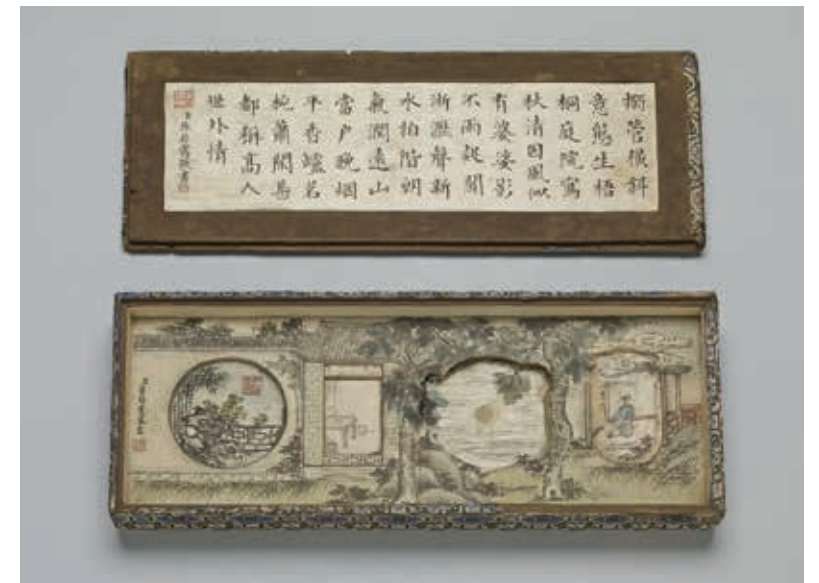 搦管橫斜
意態生梧
桐庭院寫
秋清因風似
有婆娑影
不雨疑聞
淅瀝聲新
水拍階朝
氣潤遠山
當户晚烟
平香罏茗
椀蕭閒甚
都稱高人
世外情